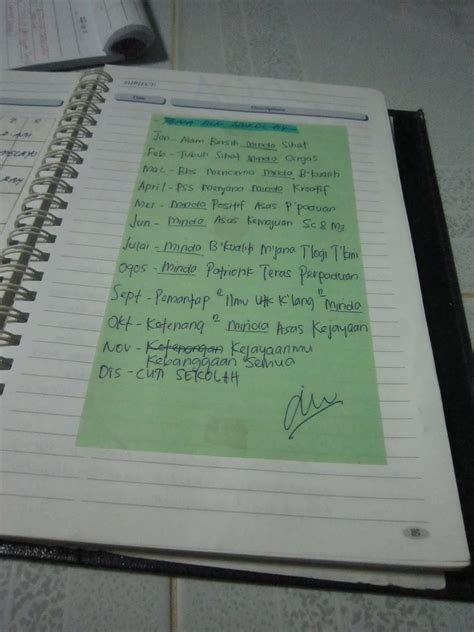 SUBJECT:
Date
Descriptions
Jan - Alam Bersih Minda Sihat
Feb - Tubuh Sihat Minda Cergas
Mac - Bhs mencerna Minda B'kualiti
April - PSS menjana Minda Kreatif
Mei - Minda Positif Asas P'paduan
Jun - Minda Asas Kemajuan Sc & M3
Julai - Minda B'kualiti M'jana T'logi T'kini
Ogos - Minda Patriotik Teras Perpaduan
Sept - Pemantap Ilmu utk K'lang Minda
Okt - Ketenang Minda Asas Kejayaan
Nov - Ketenangan Kejayaanmu
Kebanggaan Semua
Dis - CUTI SEKOLAH